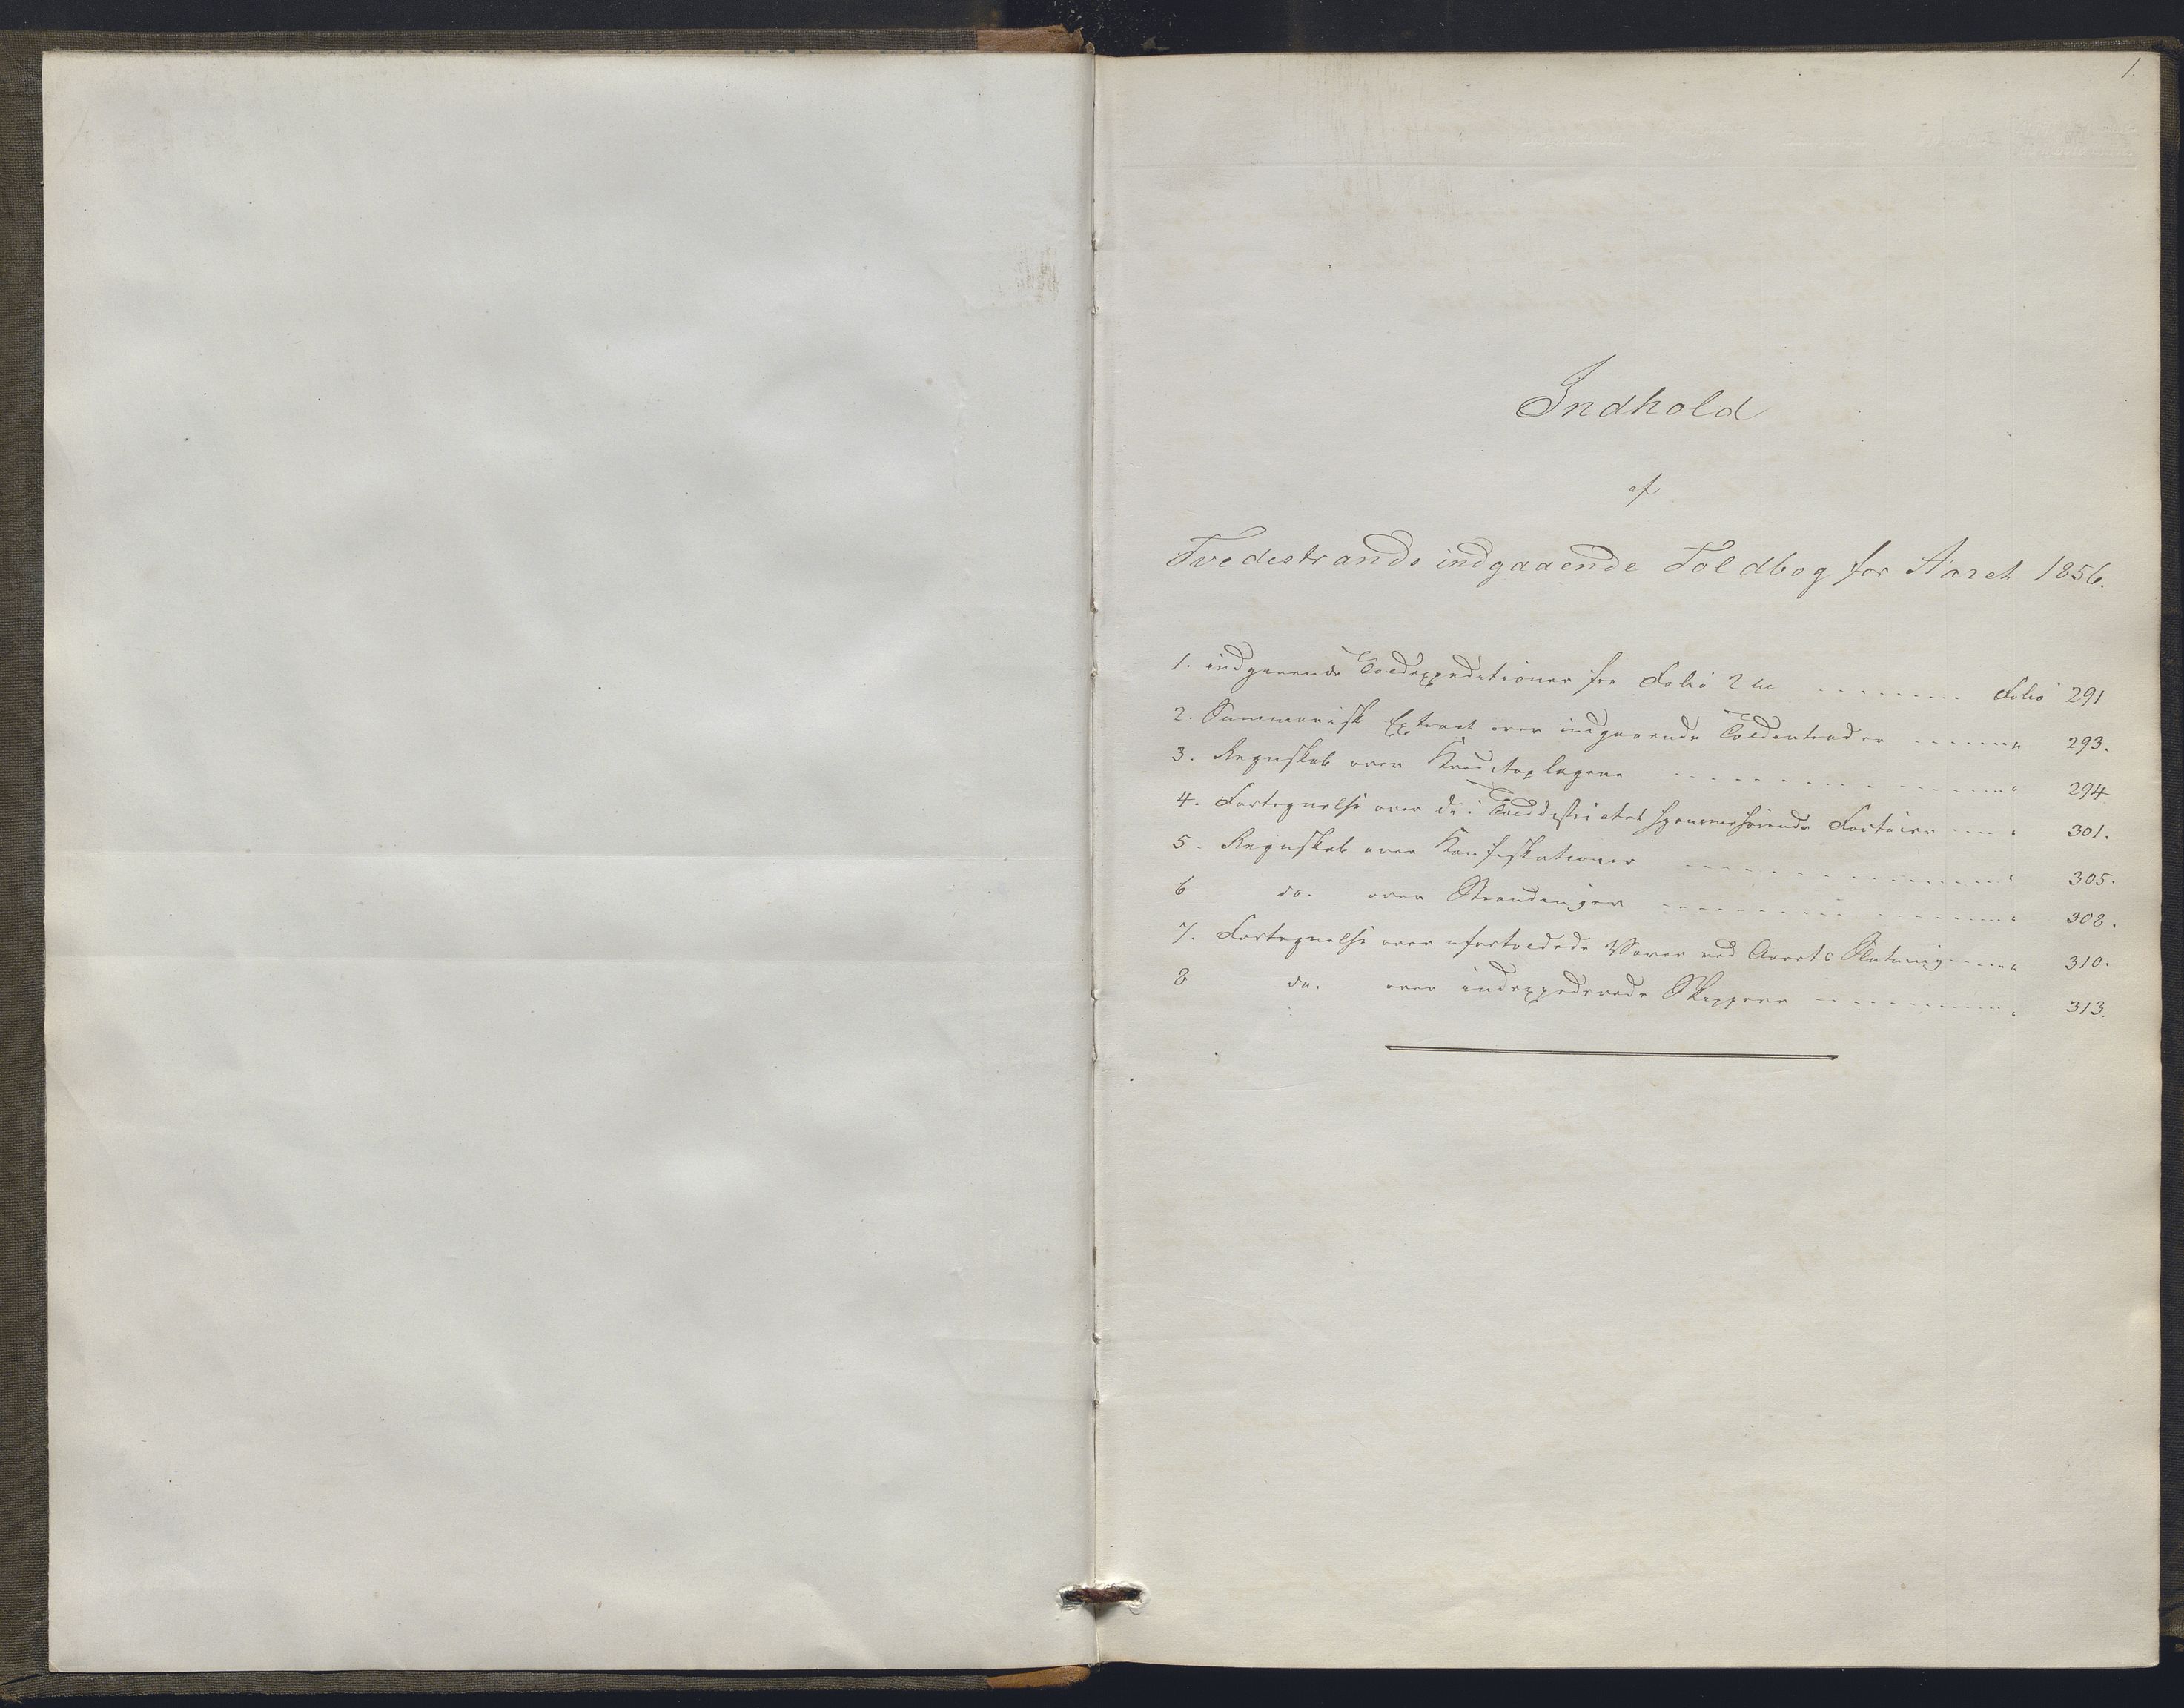 1.
Indhold
af
Tvedestrands indgaaende Toldbog for Aaret 1856.
1. indgaaende Toldexpeditioner fra Folio 2 til ........ Folio 291
2. Summarisk Extract over indgaaende Toldintrader ....... " 293.
3. Regnskab over Kreditoplagene ........ " 294
4. Fortegnelse over de i Tolddistrictet hjemmehørende Fartøier .... " 301.
5. Regnskab over Konfiskationer ........ " 305.
6 do. over Strandinger ........ " 308.
7. Fortegnelse over ufortoldede Varer ved Aarets Slutning ..... " 310.
8 do. over indexpederede Skippere ........ " 313.